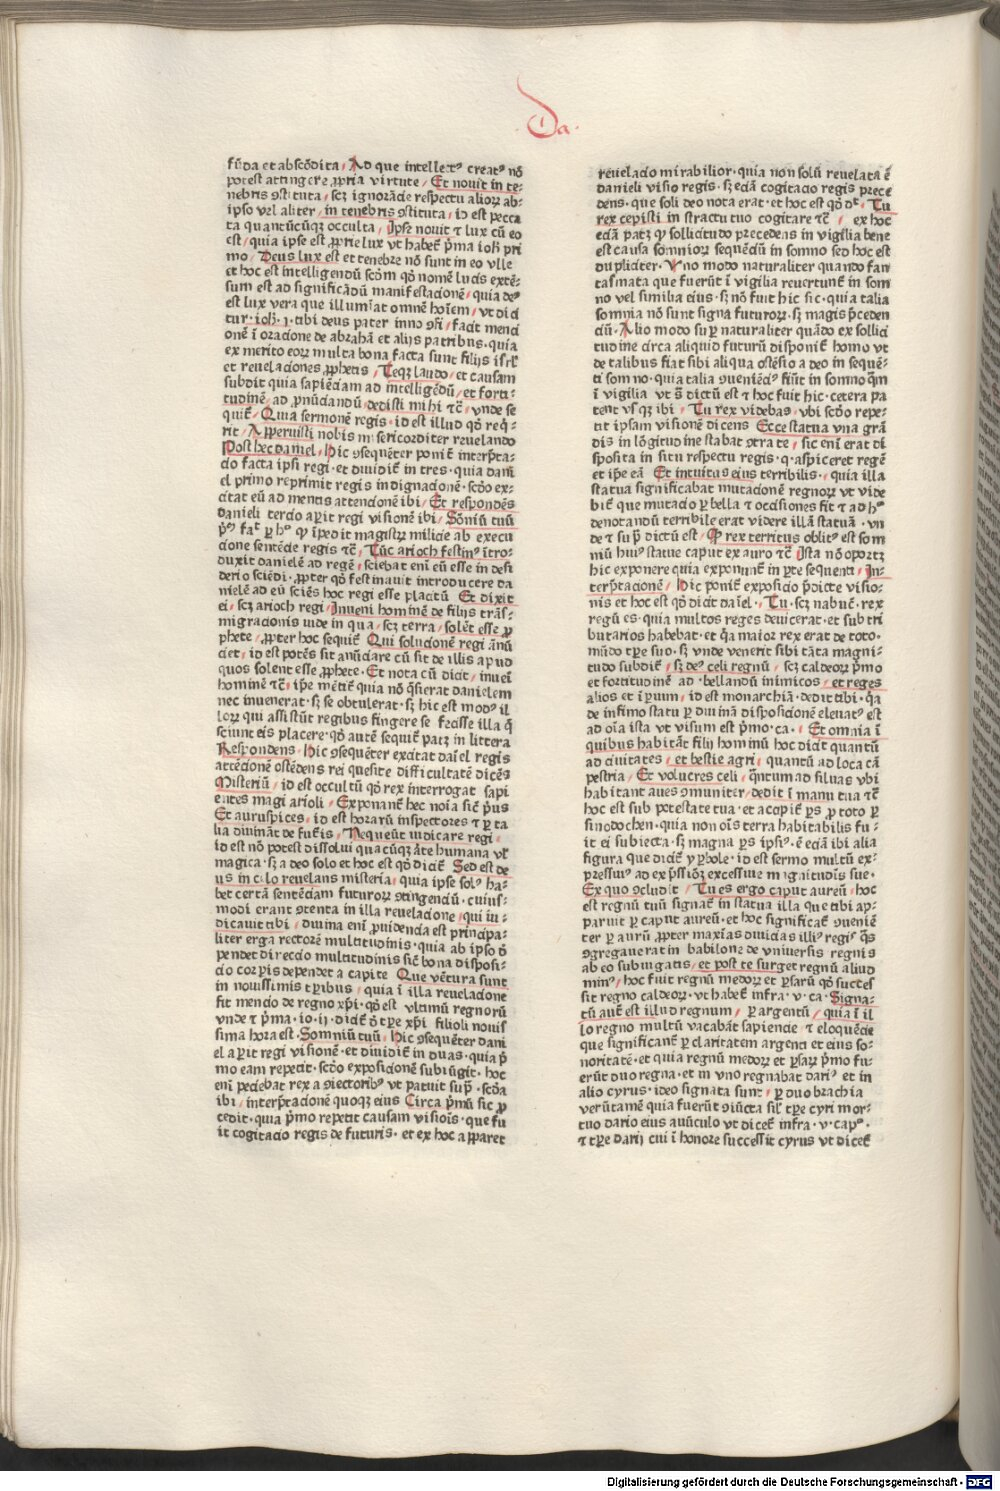 Da.
fūda et abscōdita, Ad que intellectꝰ creatꝰ nō
potest attingere ꝓpria virtute, Et nouit in te-
nebris ꝯstituta, scꝫ ignorācie respectu alioꝝ ab-
ipso vel aliter, in tenebris ꝯstituta, id est pecca
ta quantūcūqꝫ occulta, Ipse nouit ⁊ lux cū eo
est, quia ipse est ꝓprie lux vt habet᷑ p̄ma ioħ pri
mo, Deus lux est et tenebre nō sunt in eo vlle
et hoc est intelligendū scd̄m qđ nomē lucis extē-
sum est ad significādū manifestacionē, quia deꝰ
est lux vera que illumīat omnē hoīem, vt dici
tur. ioħ. ı. tibi deus pater inno ꝯfi, facit menci
onē ī oracione de abrahā et alijs patribus. quia
ex merito eoꝝ multa bona facta sunt filijs isrł
et reuelaciones ꝓphetis, Teqꝫ laudo, et causam
subdit quia sapiēciam ad intelligēdū, et forti-
tudinē, ad ꝓnūciandū, dedisti mihi ⁊c̄, vnde se
quit᷑, Quia sermonē regis, id est illud qđ req̄-
rit, Apperuisti nobis misericorditer reuelando
Post hec daniel, Hic ꝯsequēter ponit᷑ interp̄ta-
cio facta ipsi regi. et diuidit᷑ in tres. quia dani
el primo reprimit regis indignacionē. scd̄o ex-
citat eū ad mentis attencionē ibi, Et respondēs
danieli tercio aꝑit regi visionē ibi, Sōniū tuū
p̄ꝰ faᵗ ꝑ hᵒ ꝙ īpedit magistꝝ milicie ab execu
cione sentēcie regis ⁊c̄, Tūc arioch festinꝰ ītro-
duxit danielē ad regē, sciebat enī eū esse in desi
derio sciēdi. ꝓpter qđ festinauit introducere da
nielē ad eū sciēs hoc regi esse placitū Et dixit
ei, scꝫ arioch regi, Inueni hominē de filijs trās-
migracionis iude in qua, scꝫ terra, solēt esse ꝓ
phete, ꝓpter hoc sequit᷑ Qui solucionē regi ānū
ciet, id est potēs sit anūciare cū sit de illis apud
quos solent esse ꝓphete. Et nota cū dicit, inueī
hominē ⁊c̄, ip̄e mētit᷑ quia nō q̄sierat danielem
nec inuenerat. sꝫ se obtulerat. sꝫ hic est modꝰ il
loꝝ qui assistūt regibus fingere se fecisse illa q̄
sciunt eis placere. qđ autē sequit᷑ patꝫ in littera
Respondens. Hic ꝯsequēter excitat daīel regis
attēcionē ostēdens rei quesite difficultatē dicēs
Misteriū, id est occultū qđ rex interrogat sapi
entes magi arioli, Exponant᷑ hec noīa sic̄ p̄us
Et auruspices, id est horarū inspectores ⁊ ꝑ ta
lia diuināt de fut᷑is, Nequeūt iudicare regi.
id est nō potest dissolui quacūqꝫ ārte humana vł
magica. sꝫ a deo solo et hoc est qđ dicit᷑ Sed est de
us in celo reuelans misteria, quia ipse solꝰ ha-
bet certā sentēciam futuroꝝ ꝯtingenciū. cuius-
modi erant ꝯtenta in illa reuelacione, qui iu-
dicauit tibi, diuina enī ꝓuidencia est principa-
liter erga rectorē multitudinis. quia ab ipso d̄
pendet direccio multitudinis sic̄ bona disposi-
cio corꝑis dependet a capite Que vētura sunt
in nouissimis tꝑibus, quia ī illa reuelacione
fit mencio de regno xp̄i. qđ est vltimū regnorū
vnde ⁊ p̄ma. io. ij. dicit᷑ d̄ tꝑe xp̄i filioli nouis
sima hora est. Somniū tuū, Hic ꝯsequēter dani
el aꝑit regi visionē. et diuidit᷑ in duas. quia p̄
mo eam repetit. scd̄o exposicionē subiūgit. hoc
enī petebat rex a ꝯiectoribꝰ vt patuit sup̄. scd̄a
ibi, interp̄tacionē quoqꝫ eius Circa p̄mū sic ꝓ
cedit. quia p̄mo repetit causam visiōis. que fu
it cogitacio regis de futuris. et ex hoc apparet
reuelacio mirabilior. quia non solū reuelata ē
danieli visio regis. sꝫ eciā cogitacio regis prece
dens. que soli deo nota erat. et hoc est qđ dᵗ. Tu
rex cepisti in stractu tuo cogitare ⁊c̄, ex hoc
eciā patꝫ ꝙ sollicitudo precedens in vigilia bene
est causa somnioꝝ sequēciū in somno sed hoc est
dupliciter. Vno modo naturaliter quando fan
tasmata que fuerūt ī vigilia reuertunt᷑ in som
no vel similia eius. sꝫ nō fuit hic sic. quia talia
somnia nō sunt signa futuroꝝ. sꝫ magis p̄ceden
ciū. Alio modo suꝑ naturaliter quādo ex sollici
tudine circa aliquid futurū disponit᷑ homo vt
de talibus fiat sibi aliqua ostēsio a deo in sequē-
ti somno. quia talia ꝯueniēciꝰ fiūt in somno q̄m
ī vigilia vt s̄ dictū est ⁊ hoc fuit hic. cetera pa
tent vsqꝫ ibi, Tu rex videbas. vbi scd̄o repe-
tit ipsam visionē dicens Ecce statua vna grā
dis in lōgitudine stabat ꝯtra te, sic enī erat di
sposita in situ respectu regis. q. aspiceret regē
et ip̄e eā Et intuitus eius terribilis. quia illa
statua significabat mutacionē regnoꝝ vt vide
bit᷑ que mutacio ꝑ bella ⁊ occisiones fit ⁊ ad hᵒ
denotandū terribile erat videre illā statuā. vn
de ⁊ sup̄ dictū est, Ꝙ rex territus oblitꝰ est som
niū huiꝰ statue caput ex auro ⁊c̄ Ista nō oportꝫ
hic exponere quia exponunt᷑ in ꝑte sequenti, In-
terp̄tacionē, Hic ponit᷑ exposicio p̄dicte visio-
nis et hoc est qđ dicit daīel. Tu. scꝫ nabuč. rex
regū es. quia multos reges deuicerat. et sub tri
butarios habebat. et q̄a maior rex erat de toto.
mūdo tꝑe suo. sꝫ vnde venerit sibi tāta magni-
tudo subdit᷑, sꝫ deꝰ celi regnū, scꝫ caldeoꝝ p̄mo
et fortitudinē ad. bellandū inimicos, et reges
alios et īperium, id est monarchiā. dedit tibi. q̄a
de infimo statu ꝑ diuinā disposicionē eleuatꝰ est
ad oīa ista vt visum est p̄mo. ca., Et omnia ī
quibus habitāt filij hominū hoc dicit quantū
ad ciuitates, et bestie agri, quantū ad loca cā
pestria, Et volucres celi, q̄ntum ad siluas vbi
habitant aues ꝯmuniter, dedit ī manu tua ⁊c̄
hoc est sub potestate tua. et accipit᷑ ꝑs ꝓ toto ꝑ
sinodochen. quia non oīs terra habitabilis fu-
it ei subiecta. sꝫ magna ꝑs ipsiꝰ. ē eciā ibi alia
figura que dicit᷑ yꝑbole. id est sermo multū ex-
pressiuꝰ ad exp̄ssiōꝫ excessiue magnitudis sue.
Ex quo ꝯcludit, Tu es ergo caput aureū, hoc
est regnū tuū signat᷑ in statua illa que tibi ap-
paruit ꝑ caput aureū. et hoc significat᷑ ꝯueniē
ter ꝑ aurū ꝓpter maxīas diuicias illiꝰ regiꝰ q̄s
ꝯgregauerat in babilone de vniuersis regnis
ab eo subiugatis, et post te surget regnū aliud
minꝰ, hoc fuit regnū medoꝝ et ꝑsarū qđ succes
sit regno caldeoꝝ. vt habet᷑ infra. v. ca. Signa-
tū aut᷑ est illud regnum, ꝑ argentū, quia ī il
lo regno multū vacabāt sapiencie, ⁊ eloquēcie
que significant᷑ ꝑ claritatem argenti et eius so-
noritatē. et quia regnū medoꝝ et ꝑsaꝝ p̄mo fu-
erūt duo regna. et in vno regnabat dariꝰ et in
alio cyrus. ideo signata sunt, ꝑ duo brachia
verūtamē quia fuerūt ꝯiūcta siꝉ tꝑe cyri mor-
tuo dario eius auūculo vt dicet᷑ infra. v. capᵒ.
⁊ tꝑe darij cui ī honore successit cyrus vt dicet᷑
Digitalisierung gefördert durch die Deutsche Forschungsgemeinschaft - DFG